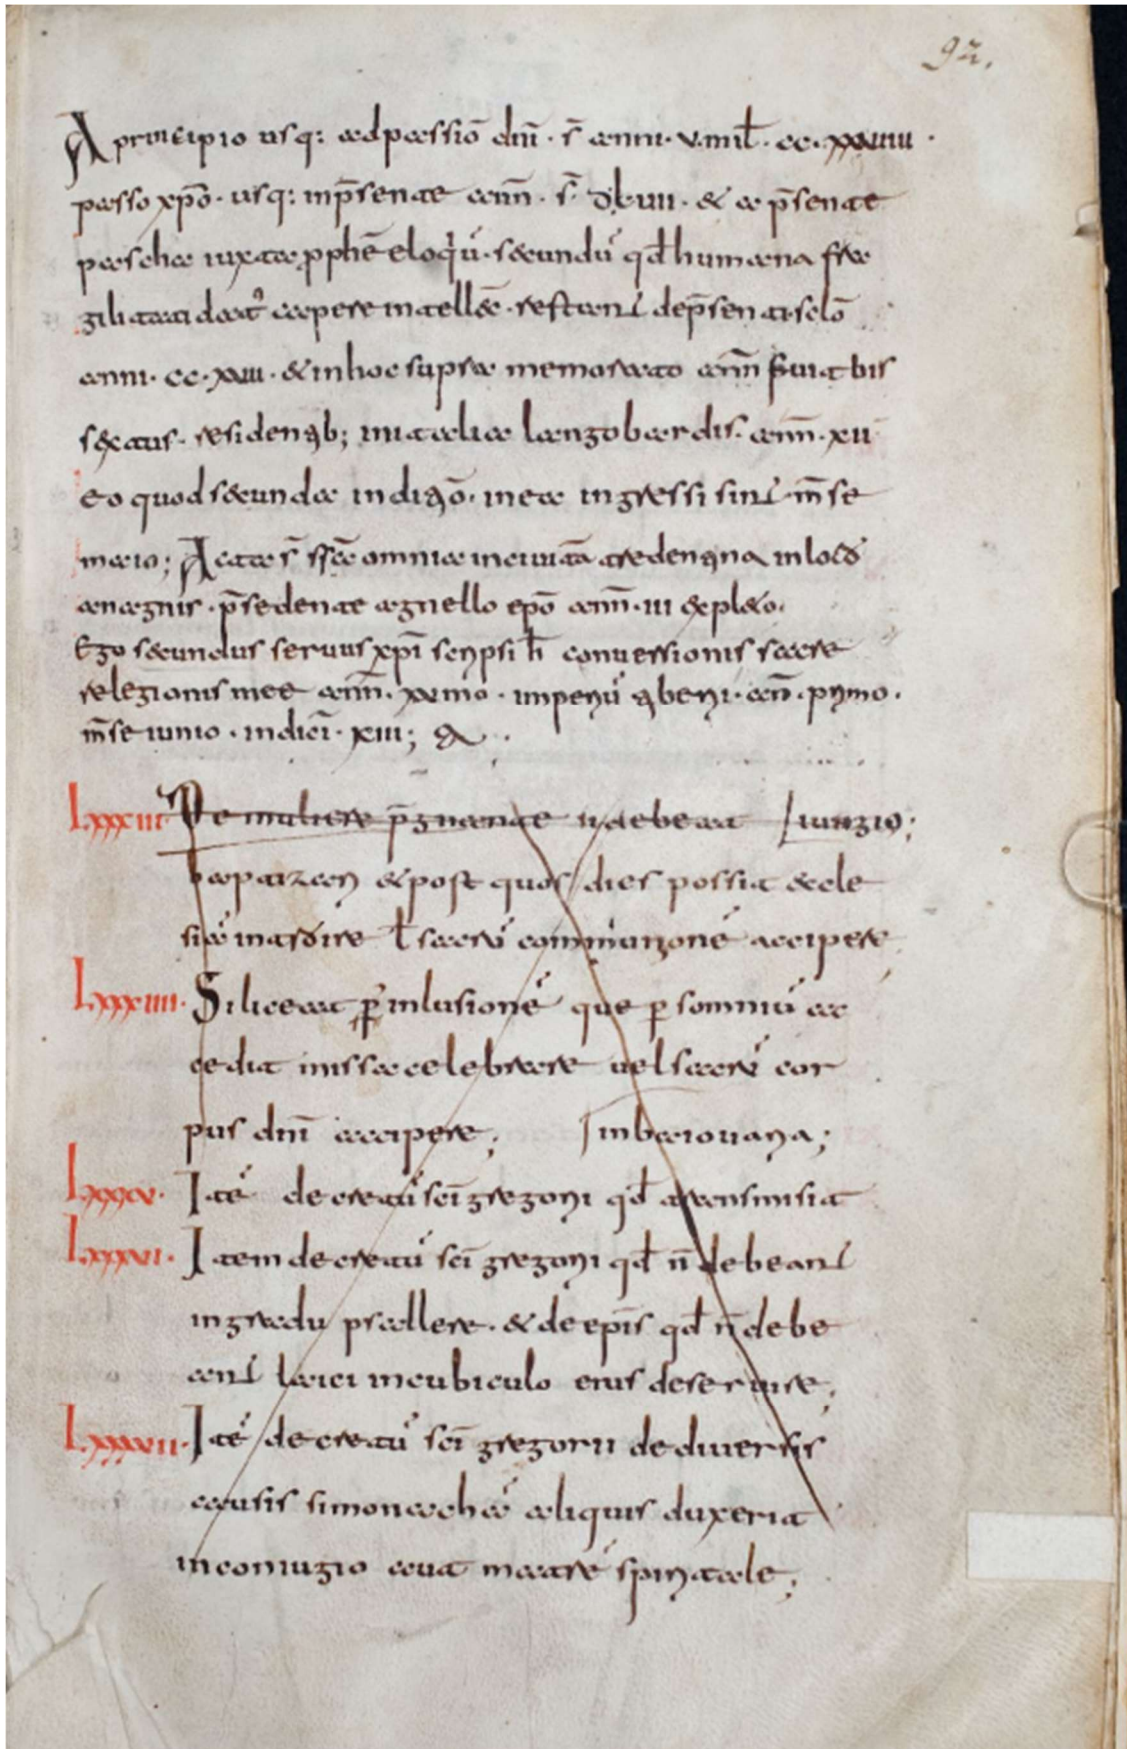 92.
A principio usq: ad passiō dn̄i · s̄ anni · v · mil̄ · cc · xxviiii ·
passo xp̄o · usq: in p̄sente ann̄ · s̄ · dl·viii · & a p̄sente
pascha iuxta p̱phē eloq̇ū · secundū qd̄ humana fra
gilitati dat᷒ capere intellec̄ · restant de p̄senti sclō
anni · cc · xiii · & in hoc supra memorato ann̄ fuit bis
sextus · residentib; in italia langobardis · ann̄ · xii
eo quod secunda indictiō · in ea ingressi sunt m̄se
maio; Acta s̄ ss̄cē omnia in ciuitā tredentina in locō
anagnis · p̄sedente agnello ep̄o ann̄ · iii expleto ·
Ego secundus seruus xp̄i scripsi h̄ conuersionis sacre
relegionis mee ann̄ · xvmo · imperiū tiberii · an̄n · primo ·
m̄se iunio · indici̅ · xiii; a ·
Lxxxiii De muliere p̄gnante si debeat
baptizari & post quos dies possit eccle
siā introire l̄ sacrā communionē accipere
Lxxxiiii · Si liceat p̱ inlusionē que p̱ somniū ac
cedit missa celebrare uel sacrū cor
pus dn̄i accipere; In baiouaria;
Lxxxv · Itē decretū sc̄i gregorii qd̄ transmisit
Lxxxvi · Item decretū sc̄i gregorii qd̄ n̄ debeant
in gradu psallere · & de ep̄is qd̄ n̄ debe
ant laici in cubiculo eius deseruire;
Lxxxvii · Itē decretū sc̄i gregorii de diuersis
causis simonachā aliquis duxerit
in coniugio aut matrē spiritale;